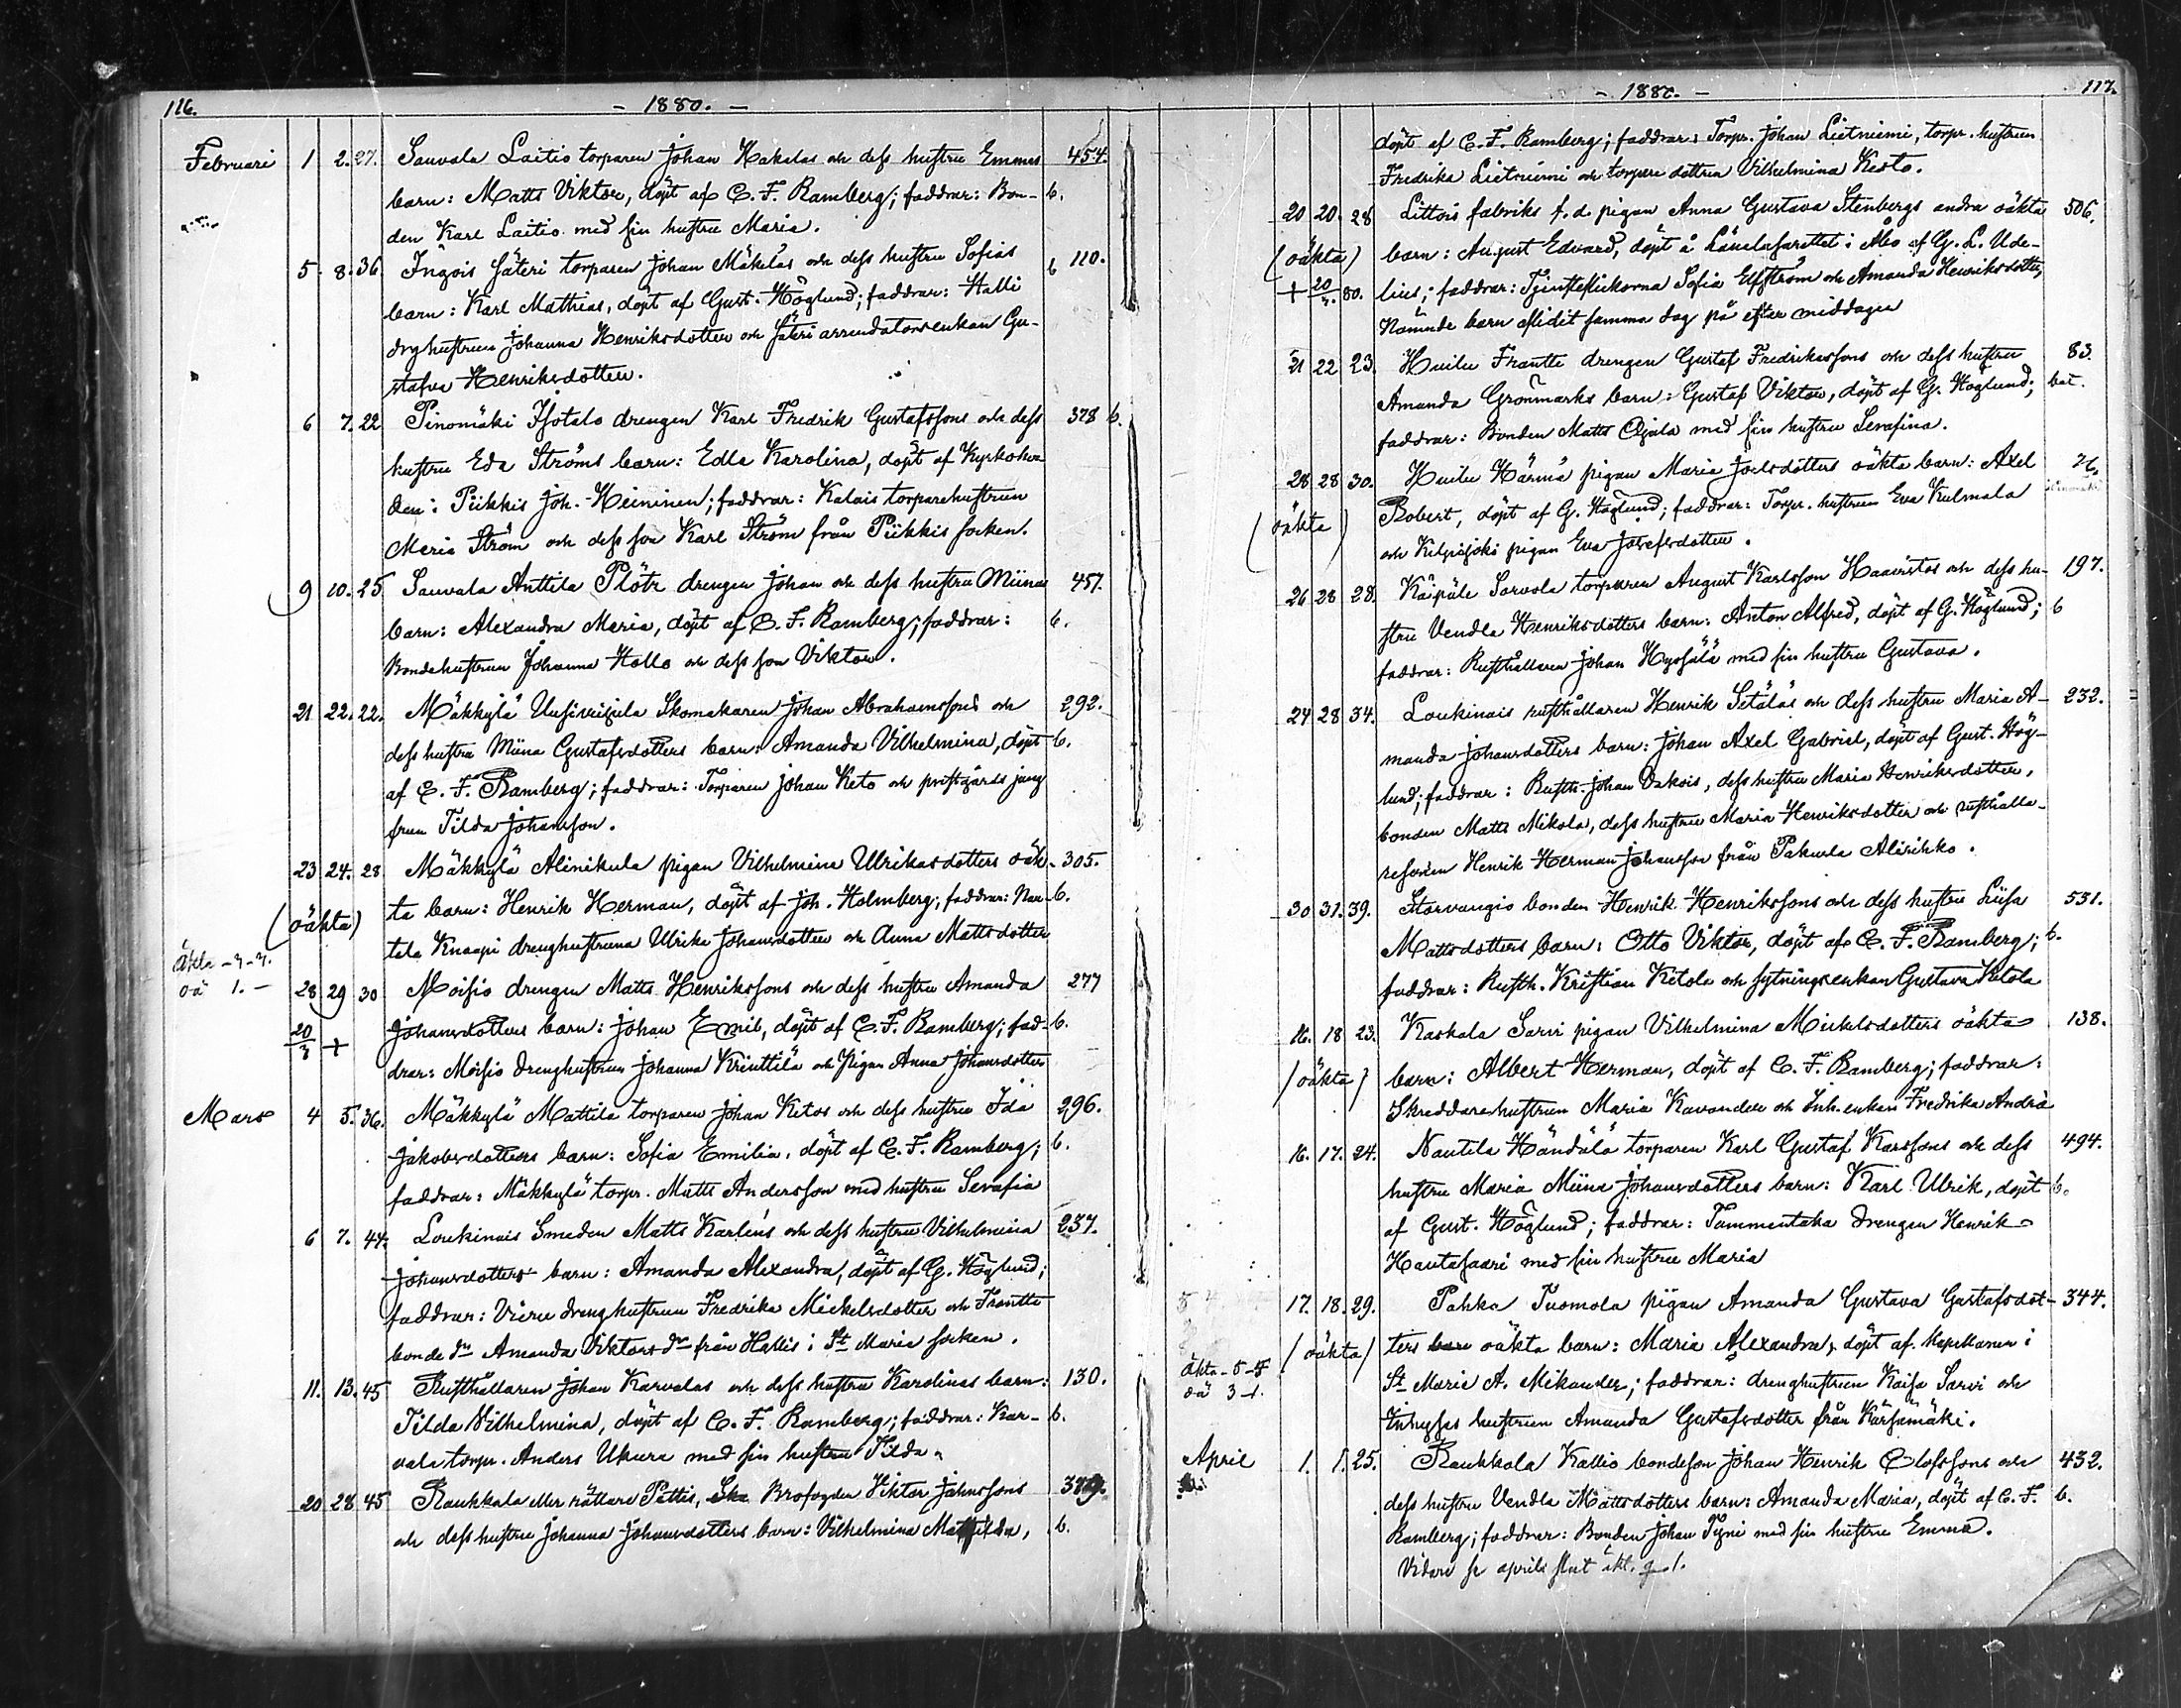 116. - 1880. -
Februari 1 2. 27. Sauvala Laitio torparen Johan Hakalas och dess hustru Emmas 454.
barn: Matts Viktor, döpt af C. F. Ramberg; faddrar: Bon- b.
den Karl Laitio med sin hustru Maria.
5. 8. 36. Ingois Säteri torparen Johan Mäkeläs och dess hustru Sofias b 110.
barn: Karl Mathias, döpt af Gust. Höglund; faddrar: Halli
drghustrun Johanna Henriksdotter och Säteri arrendatorsenkan Gu-
stafva Henriksdotter.
6 7. 22 Pinomäki Isotalo drengen Karl Fredrik Gustafssons och dess 378 b.
hustru Eda Ströms barn: Edla Karolina, döpt af Kyrkoher-
den i Piikkis Joh. Heininen; faddrar: Kalais torparehustrun
Maria Ström och dess son Karl Ström från Piikkis socken.
9 10. 25 Sauvala Anttila Plötz drengen Johan och dess hustru Miinas 451.
barn: Alexandra Maria, döpt af C. F. Ramberg; faddrar: b.
Bondehustrun Johanna Hollo och dess son Viktor.
21 22. 22. Mäkkylä Uusivigula Skomakaren Johan Abrahamssons och 292.
dess hustru Miina Gustafsdotters barn: Amanda Vilhelmina, döpt b.
af C. F. Ramberg; faddrar: Torparen Johan Keto och prestgårds jung
frun Tilda Johansson.
23 24. 28 Mäkkylä Alinikula pigan Vilhelmina Ulrikasdotters oäk- 305.
(oäkta) ta barn: Henrik Herman, döpt af Joh. Holmberg; faddrar: Nau- b.
tela Knaapi drenghustruna Ulrika Johansdotter och Anna Mattsdotter
äkta -7-7.
oä 1. - 28 29 30 Moisio drengen Matts Henrikssons och dess hustru Amanda 277
20/3 + Johansdotters barn: Johan Emil, döpt af C. F. Ramberg; fad- b.
drar: Moisio drenghustrun Johanna Krinttilä och Pigan Anna Johansdotter
Mars 4 5. 36. Mäkkylä Mattila torparen Johan Ketos och dess hustru Ida 296.
Jakobsdotters barn: Sofia Emilia, döpt af C. F. Ramberg; b.
faddrar: Mäkkylä torpr. Matts Andersson med hustru Serafia
6 7. 44. Loukinais Smeden Matts Karlens och dess hustru Vilhelmina 237.
Johansdotters barn: Amanda Alexandra, döpt af G. Höglund;
faddrar: Viiru drenghustrun Fredrika Mickelsdotter och Frantti
bonde dr Amanda Viktorsdr från Hallis i St Marie socken.
11. 13. 45 Rusthållaren Johan Karvalas och dess hustru Karolinas barn: 130.
Tilda Vilhelmina, döpt af C. F. Ramberg; faddrar: Kar- b.
vala torpr. Anders Ukura med sin hustru Tilda.
20 28 45 Raukkala eller rättare Pettis, Brofogden Viktor Johnssons 379.
och dess hustru Johanna Johansdotters barn: Vilhelmina Matilda, b.
- 1880. - 117.
döpt af C. F. Ramberg; faddrar: Torpr. Johan Lietniemi, torpr. hustrun
Fredrika Lietniemi och torpare dottren Vilhelmina Kesto.
20 20. 28 Littois fabriks f. d. pigan Anna Gustava Stenbergs andra oäkta 506.
(oäkta) barn: August Edvard, döpt å Länelasarettet i Åbo af G. L. Ude-
+ 20/3. 80. lius; faddrar: Tjensteflickorna Sofia Elfström och Amanda Henriksdotter,
Nämnde barn aflidit samma dag på efter middagen
21 22 23. Huilu Frantti drengen Gustaf Fredrikssons och dess hustru 83.
Amanda Grönmarks barn: Gustaf Viktor, döpt af G. Höglund; bet.
faddrar: Bonden Matts Ojala med sin hustru Serafina.
28 28 30. Huilu Härmä pigan Maria Joelsdotters oäkta barn: Axel
(oäkta) Robert, döpt af G. Höglund; faddrar: Torpr. hustrun Eva Kulmala
och Kilpisjoki pigan Eva Josefsdotter.
26 28 28. Käipälä Sarvola torparen August Karlsson Haavistos och dess hu- 197.
stru Vendla Henriksdotters barn: Anton Alfred, döpt af G. Höglund; b
faddrar: Rusthållaren Johan Hyssälä med sin hustru Gustava.
24 28 34. Loukinais rusthållaren Henrik Setäläs och dess hustru Maria A- 232.
manda Johansdotters barn: Johan Axel Gabriel, döpt af Gust. Hög-
lund; faddrar: Rusth. Johan Vakois, dess hustru Maria Henriksdotter,
bonden Matts Mikola, dess hustru Maria Henriksdotter och rusthålla-
resonen Henrik Herman Johansson från Pakurla Alisirkko.
30 31. 39. Storvangio bonden Henrik Henrikssons och dess hustru Liisa 531.
Mattsdotters barn: Otto Viktor, döpt af C. F. Ramberg; b.
faddrar: Rusth. Kristian Ketola och sytningsenkan Gustava Ketola
16. 18 23. Kaskala Sarvi pigan Vilhelmina Mickelsdotters oäkta 138.
(oäkta) barn: Albert Herman, döpt af C. F. Ramberg; faddrar:
Skreddarehustrun Maria Kavander och Inh. enkan Fredrika Andrä
16. 17. 24. Nautela Händälä torparen Karl Gustaf Karlssons och dess 494.
hustru Maria Miina Johansdotters barn: Karl Ulrik, döpt b.
af Gust. Höglund; faddrar: Tammentaka drengen Henrik
Hautasaari med sin hustru Maria
17. 18. 29. Pahka Tuomola pigan Amanda Gustava Gustafsdot- 344.
(oäkta) ters barn oäkta barn: Maria Alexandra, döpt af Kapellanen i
äkta - 5-5
oä 3-1. St Marie A. Mikander; faddrar: drenghustrun Kaisa Sarvi och
Inhyses hustrun Amanda Gustafsdotter från Kärsämäki.
April 1. 1. 25. Raukkala Kallio bondeson Johan Henrik Olofssons och 432.
dess hustru Vendla Mattsdotters barn: Amanda Maria, döpt af C. F. b.
Ramberg; faddrar: Bonden Johan Tyni med sin hustru Emma.
Vidare se aprils slut